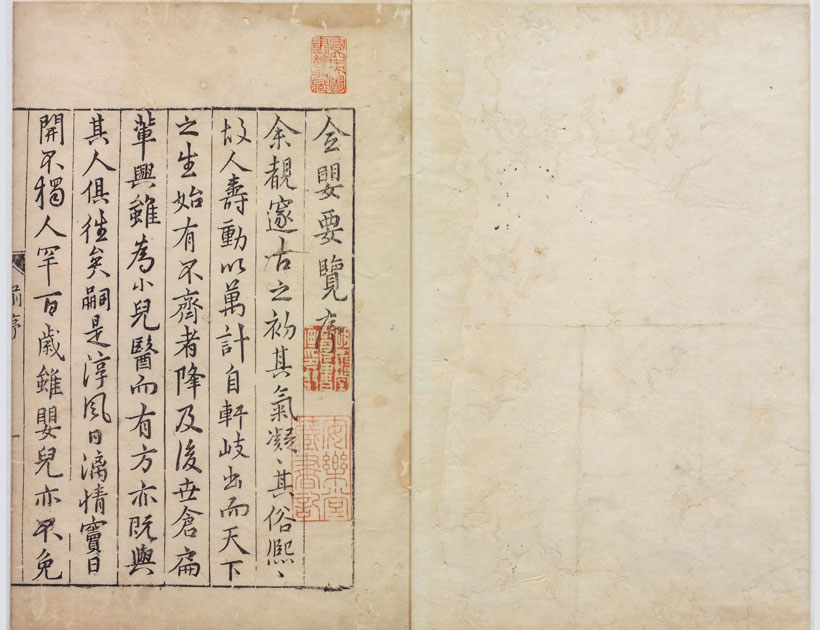 全嬰要覽序
余覩邃古之初其氣凝〻其俗熈〻
故人壽動以萬計自軒岐出而天下
之生始有不齊者降及後世倉扁
輩興雖為小兒醫而有方亦旣與
其人俱徃矣嗣是淳風日漓情竇日
開不獨人罕百歲雖嬰兒亦不免
前序
一
安樂堂
藏書記